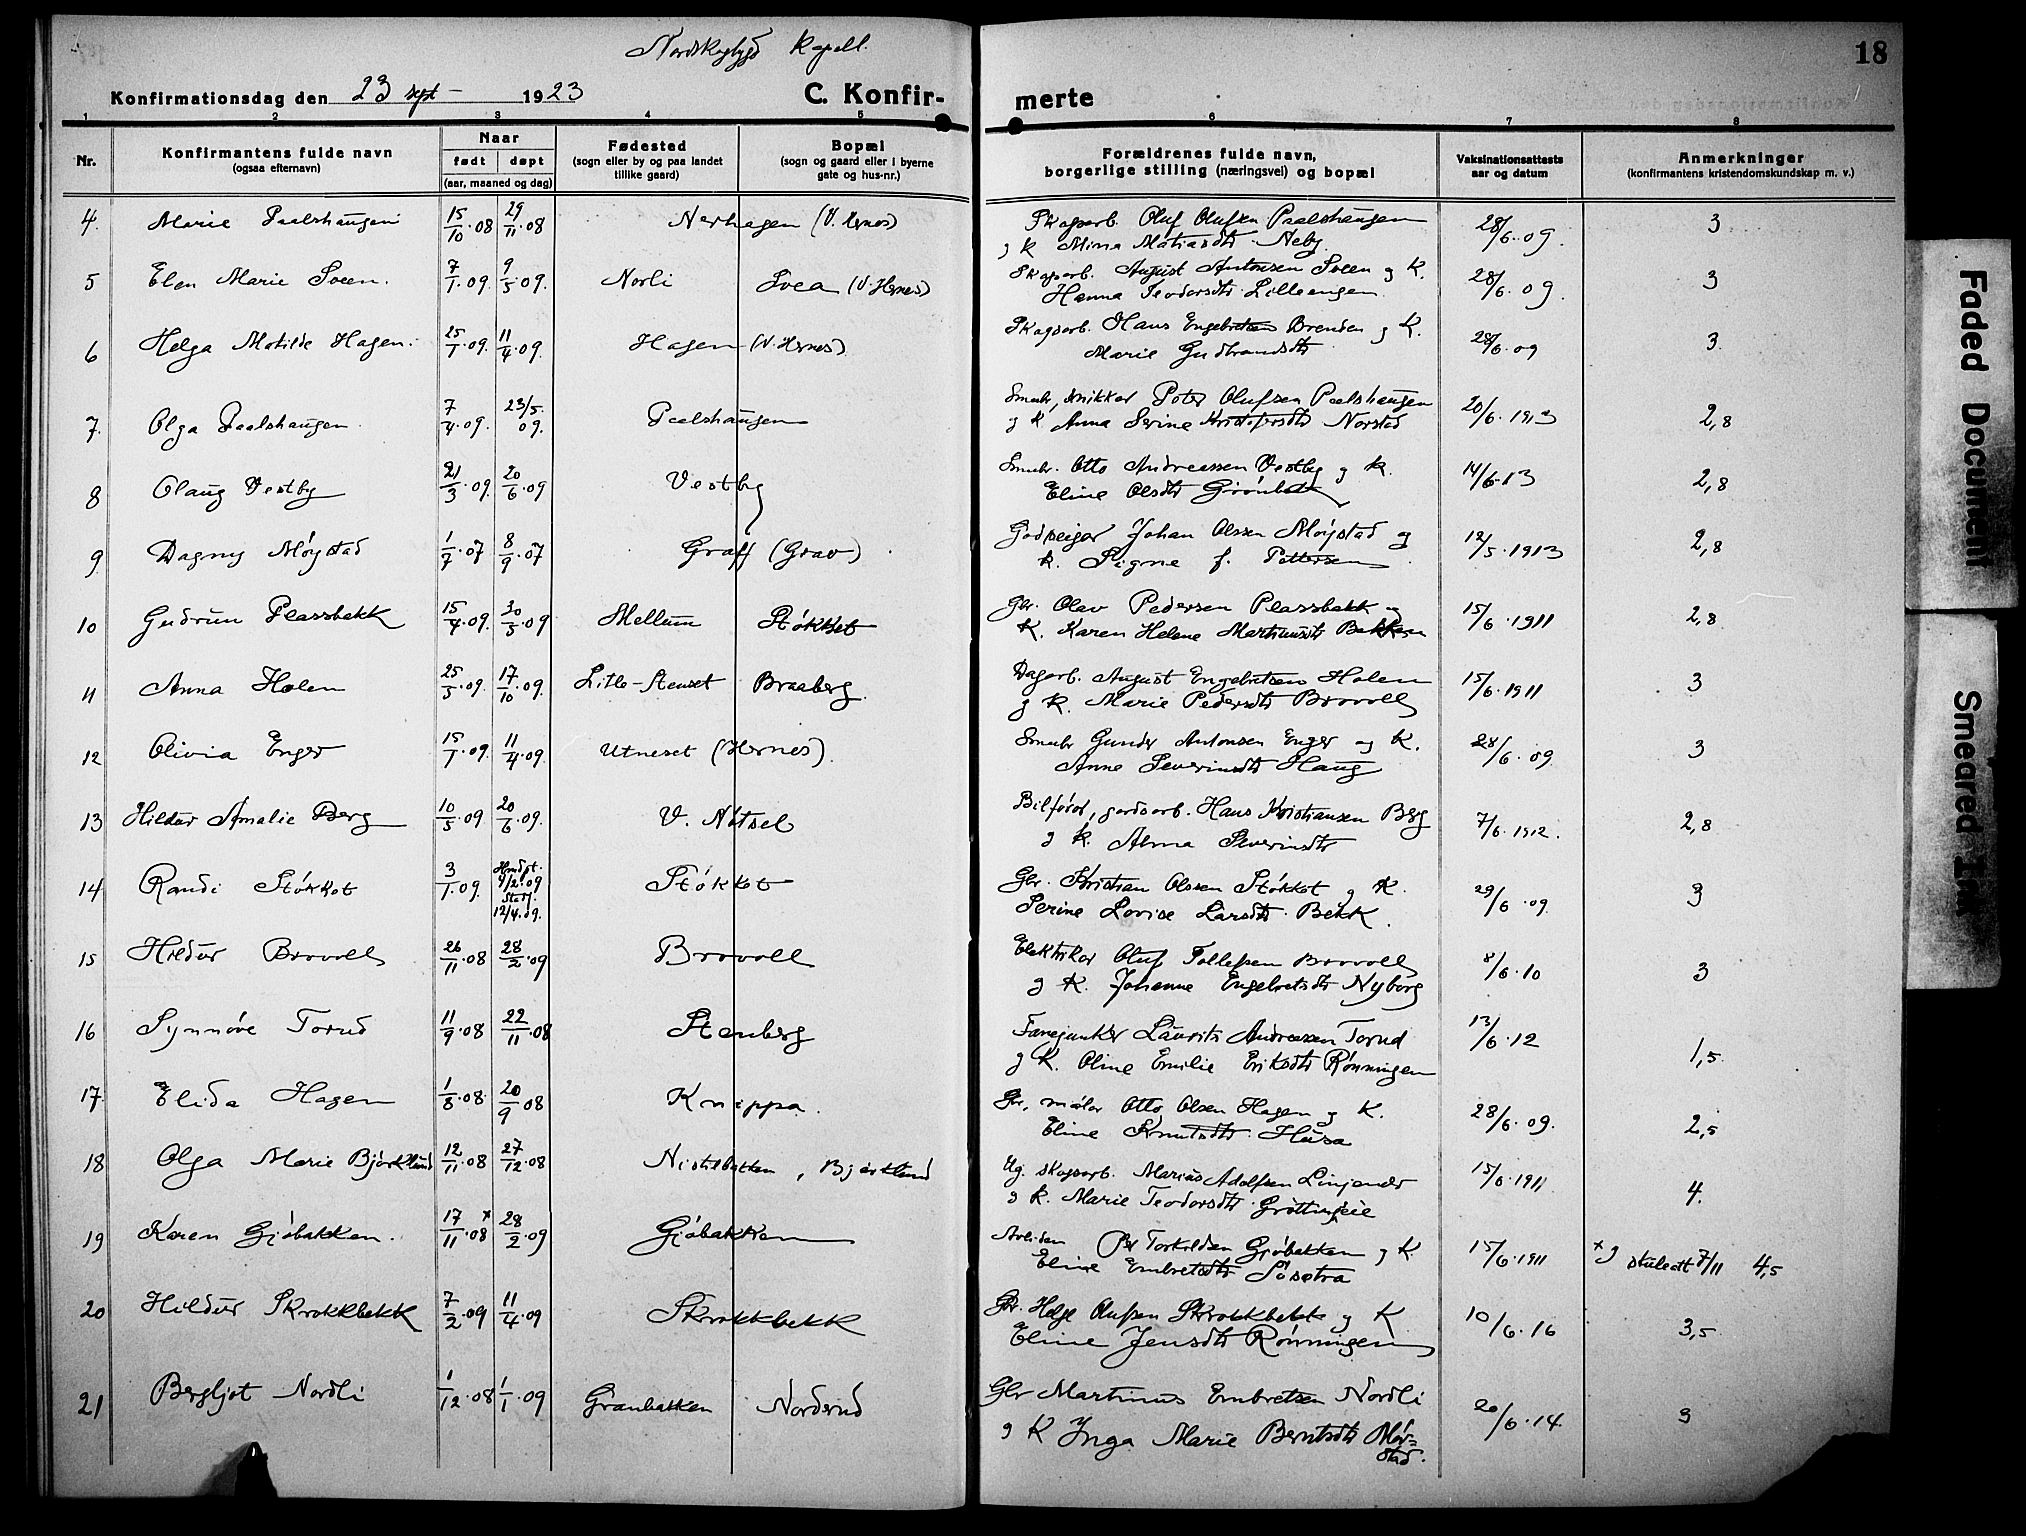 Nordskogbygd Kapell.
18
Konfirmationsdag den 23 sept 1923
C. Konfir-merte
1 2 3 4 5 6 7 8
Nr.
Konfirmantens fulde navn (ogsaa efternavn)
Naar født døpt (aar, maaned og dag)
Fødested (sogn eller by og paa landet tillike gaard)
Bopæl (sogn og gaard eller i byerne gate og hus-nr.)
Forældrenes fulde navn, borgerlige stilling (næringsvei) og bopæl
Vaksinationsattests aar og datum
Anmerkninger (konfirmantens kristendomskundskap m. v.)
4. Marie Paalshaugen 15/10.08 29/11.08 Nerhagen (V. Hernes) Skogsarb. Oluf Olufsen Paalshaugen 28/6.09. 3
g K Mina Matiasdtr. Neby.
5 Elen Marie Sveen. 7/1.09. 9/5.09. Norli Svea (V. Hernes) Skogsarb. August Antonsen Sveen g K. 28/6.09. 3
Hanna Teodorsdtr. Lilleengen.
6 Helga Matilde Hagen. 25/1.09. 11/4.09. Hagen (V. Hernes) Skogsarb. Hans Engebretsen Brenden g K. 28/6.09 3.
Marie Gudbrandsdtr
7. Olga Paalshaugen. 7/4.09. 23/5.09. Paalshaugen Smbr., snikker Peter Olufsen Paalshaugen 20/6.1913 2,8
g K Anna Serine Kristofersdtr Norstad
8 Olaug Vestby 21/3.09. 20/6.09 Vestby Smbr. Otto Andreassen Vestby g K. 14/6.13 2,8
Eline Olsdtr Grönbek
9. Dagny Möystad 1/7.07 8/9.07 Graff (Grav) Godseiger Johan Olsen Möystad og 12/5.1913 2,8
K. Signe f. Pettersen
10 Gudrun Plassbakk 15/4.09. 30/5.09 Mellum Stökket Gbr. Olav Pedersen Plassbakk og 15/6.1911 2,8
K. Karen Helene Martinusdtr Bakken
11 Anna Holen 25/5.09. 17/10.09. Litle-Stenset Braaberg. Dagarb. August Engebretsen Holen 15/6.1911 3
g K. Marie Pedersdtr Brovoll
12 Olivia Enger 15/1.09. 11/4.09. Utneset (Hernes). Smbr Gunder Antonsen Enger og K. 28/6.09. 3
Anne Severinsdtr Haug
13 Hildur Amalie Berg 10/5.09 20/6.09. V. Nötsel Bilförer, jordarb. Hans Kristiansen Berg 7/6.1912. 2,8
g K. Alma Severinsdtr
14 Randi Stökket 3/1.09. Hmdpt. 9/2.09 Stadf. 12/4.09. Stökket Gbr. Kristian Olssen Stökket g K. 29/6.09. 3
Serine Lovise Larsdtr. Bekk.
15 Hildur Brovoll 26/11.08 28/2.09 Brovoll Elektriker Oluf Tollefsen Brovoll 8/6.10 3
g K. Johanne Engebretsdtr Nyborg
16 Synnöve Torud 11/9.08 22/11.08 Stenberg Fanejunker Laurits Andreassen Torud 13/6.12 1,5.
g K. Oline Emilie Eriksdtr Rønningen
17. Elida Hagen 1/8.08. 20/9 08 Knappa. Gbr, maler Otto Olsen Hagen g K. 28/6.09. 2,5
Eline Knutsdtr. Husa
18 Olga Marie Björklund 12/11.08 27/12.08 Nistubakken, Bjørklund Ug. skogsarb. Marius Adolfsen Linjender 15/6.1911 4.
g K. Marie Teodorsdtr. Gröttingeie
19 Karen Gjöbakken. 17/11.08 x 28/2.09 Gjöbakken Arbeider Per Torkildsen Gjöbakken g K 15/6.1911 x g skuleatt 7/11 4,5
Eline Embretsdtr Sösetra
20 Hildur Skrokkbekk 7/2.09 11/4.09 Skrokkbekk Gbr. Helge Olufsen Skrokkbekk g K 10/6.16 3,5
Eline Jensdtr Rönningen
21 Bergljot Nordli 1/12.08 1/1.09 Granbakken Norderud Gbr Martinus Embretsen Nordli 20/6.14. 3
g K Inga Marie Berntsdtr Mör=
stad.
Faded Document
Smeared Ink